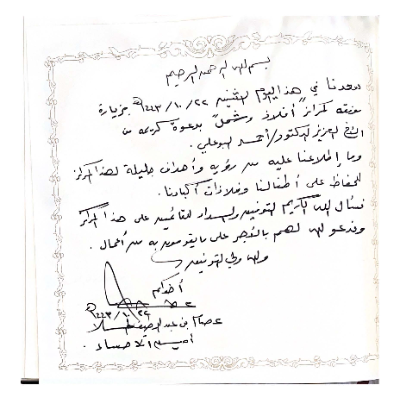 بسم الله الرحمن الرحيم
سعدنا في هذا اليوم الاثنين ١٤٤٣/١٠/٢٢هـ بزيارة
لمركز "أفلاذ وشمل" بدعوة كريمة من
الأخ العزيز الدكتور/ أحمد البوعلي.
وما إطلاعنا عليه من رؤيه وأهداف جليلة لهذا المركز
للحفاظ على أطفالنا وفلذات أكبادنا.
نسأل الله الكريم التوفيق والسداد للقائمين على هذا المركز
وندعو الله لهم بالأجر على ما يقومون به من أعمال.
والله ولي التوفيق
أخوكم
١٤٤٣/١٠/٢٢هـ
عصام بن عبداللطيف الملا
أمين الاحساء